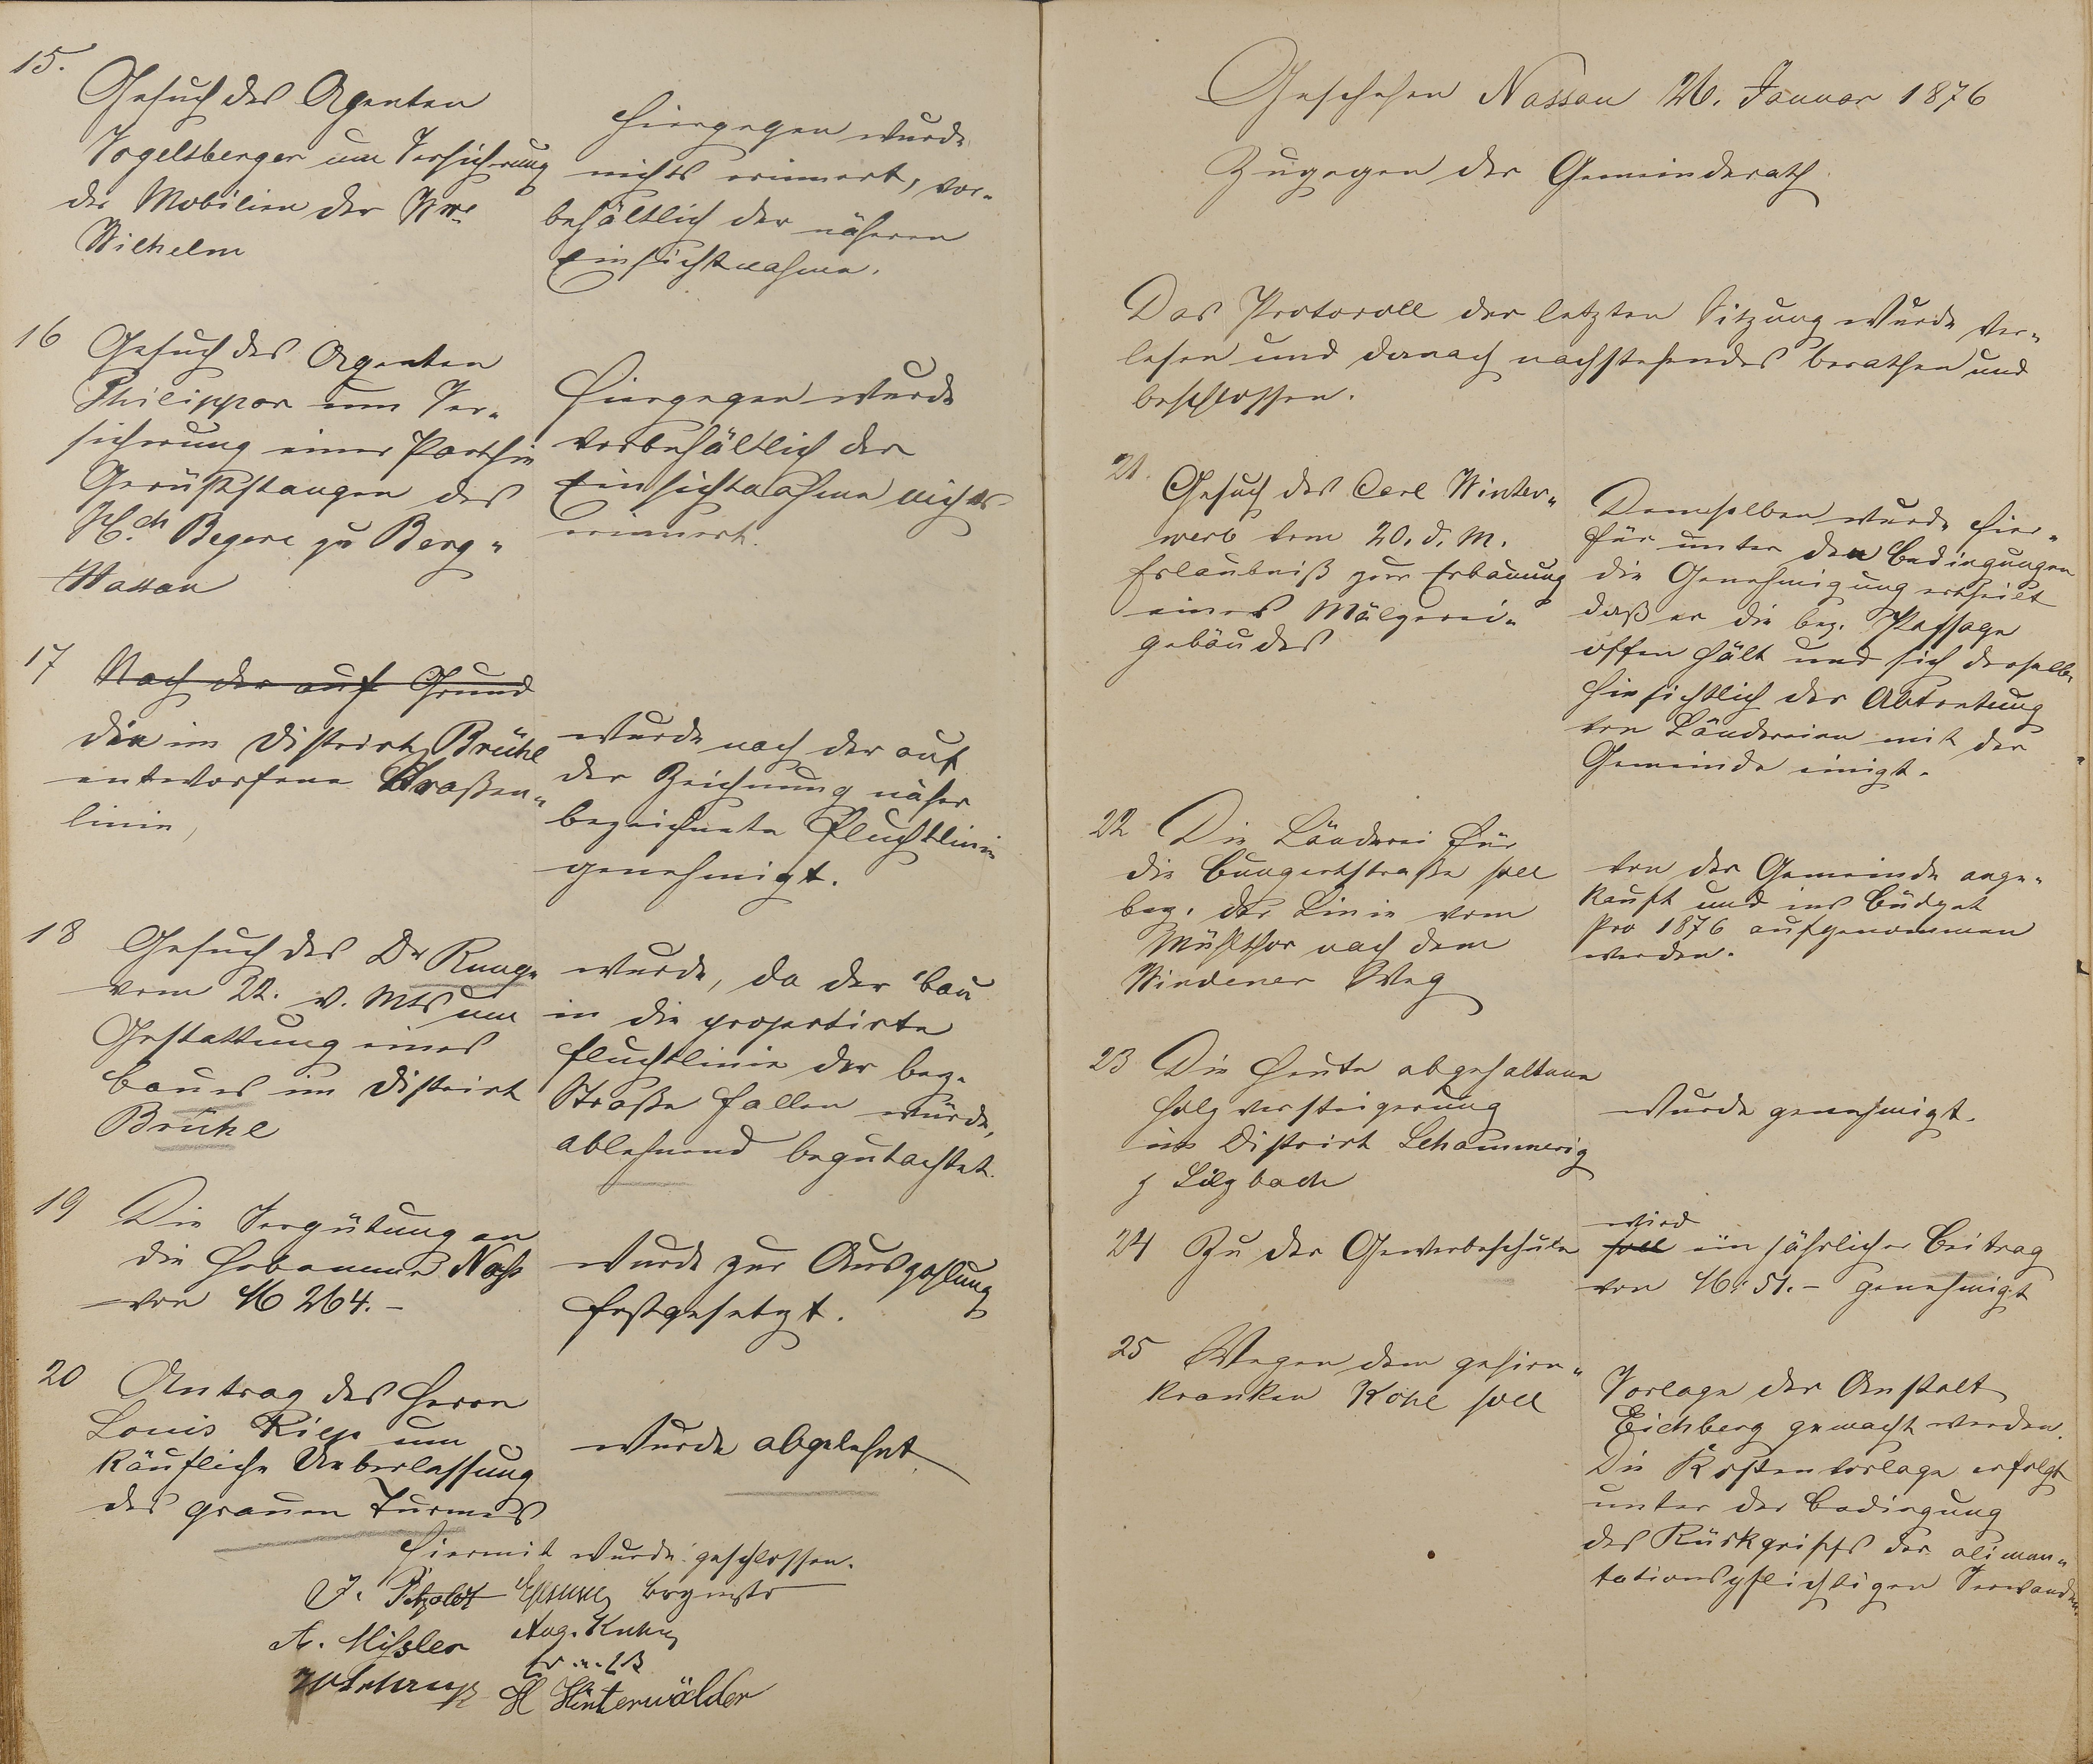 15.
Gesuch des Agenten
Vogelsberger um Versicherung
der Mobilien der Wwe
Wilhelm
Hiergegen wurde
nichts erinnert, vor-
behältlich der näheren
Einsichtnahme.
16
Gesuch des Agenten
Philippar um Ver-
sicherung einer Parthie
Gerüststangen des
Hch Begere zu Berg-
Nassau
Hiergegen wurde
vorbehältlich der
Einsichtnahme nichts
erinnert.
17
Nach der auf Grund
die im Distrikt Brühl
entworfene Straßen-
linie,
wurde nach der auf
der Zeichnung näher
bezeichnete Fluchtlinie
genehmigt.
18
Gesuch des Dr Runge
vom 22. v. Mts um
Gestattung eines
Baues im Distrikt
Brühl
wurde, da der Bau
in die projectirte
Fluchtlinie der bez.
Straße fallen würde,
ablehnend begutachtet.
19
Die Vergütung an
die Hebamme
von M 264.-
wurde zur Auszahlung
festgesetzt.
20
Antrag des Herrn
Louis um
käufliche Ueberlassung
des grauen Turmes
wurde abgelehnt
Hiermit wurde geschlossen.
J. Petzoldt
A. Mißler Aug. Kuhn
H Hinterwälder
Geschehen Nassau 26. Januar 1876
Zugegen der Gemeinderath
Das Protocoll der letzten Sitzung wurde ver-
lesen und danach nachstehendes berathen und
beschlossen.
21.
Gesuch des Carl Winter-
werb vom 20. d. M.
Erlaubniß zur Erbauung
eines Mälzerei-
gebäudes
Demselben wurde hier-
für unter den Bedingungen
die Genehmigung ertheilt
daß er die bez. Passage
offen hält und sich derselbe
hinsichtlich der Abtretung
von Ländereien mit der
Gemeinde einigt.
22
Die Länderei für
die Bungertstraße soll
bez. der Linie vom
Mühlthor nach dem
Windener Weg
von der Gemeinde ange-
kauft und ins Büdget
pro 1876 aufgenommen
werden.
23
Die heute abgehaltene
Holzversteigerung
im Distrikt Schaumerig
Sülzbach
wurde genehmigt.
24
Zu der Gewerbeschule
wird
soll ein jährlicher Beitrag
von M 51.- genehmigt
25
Wegen dem gehirn-
kranken Kohl soll
Vorlage der Anstalt
Eichberg gemacht werden.
Die Kostenvorlage erfolgt
unter der Bedingung
des Rückgriffs der alimen-
tationspflichtigen Verwandten